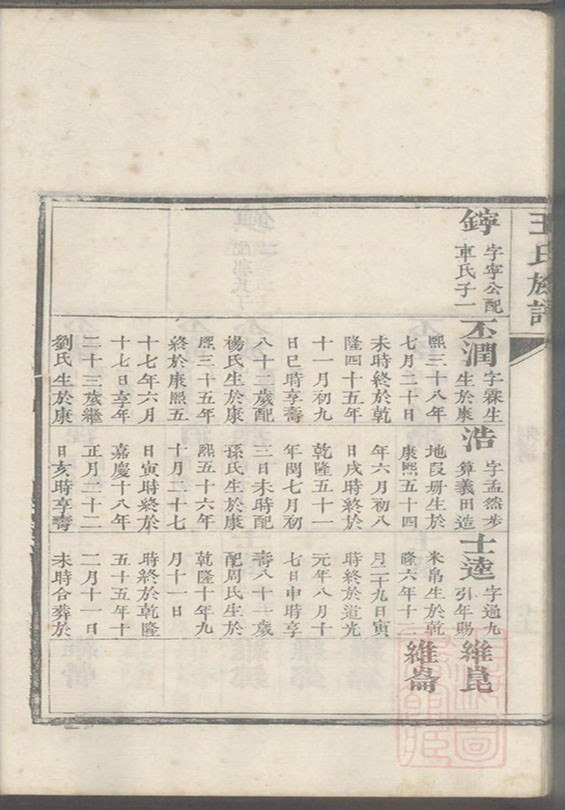 王氏族譜
字寧公配
車氏子一
丕潤 字霖生
生於康
熙三十八年
七月二十日
未時終於乾
隆四十五年
十一月初九
日巳時享壽
八十三歲配
楊氏生於康
熙三十五年
終於康熙五
十七年六月
十七日享年
二十三歲繼
劉氏生於康
浩 字孟然步
算義田造
地段册生於
康熙五十四
年六月初八
日戌時終於
乾隆五十一
年閏七月初
三日未時配
孫氏生於康
熙五十六年
十月二十七
日寅時終於
嘉慶十八年
正月二十二
日亥時享壽
士逵 字通九
引年賜
米帛生於乾
隆六年十二
月二十九日寅
時終於道光
元年八月十
七日申時享
壽八十一歲
配周氏生於
乾隆十年九
月十一日
時終於乾隆
五十五年十
二月十一日
未時合葬於
維崑
維崙